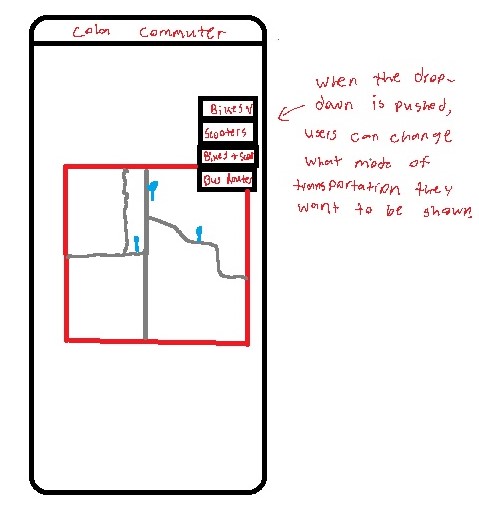 Colon Commuter
Bikes
Scooters
Bikes + Scoo
Bus Routes
when the drop-
down is pushed,
users can change
what mode of
transportation they
want to be shown